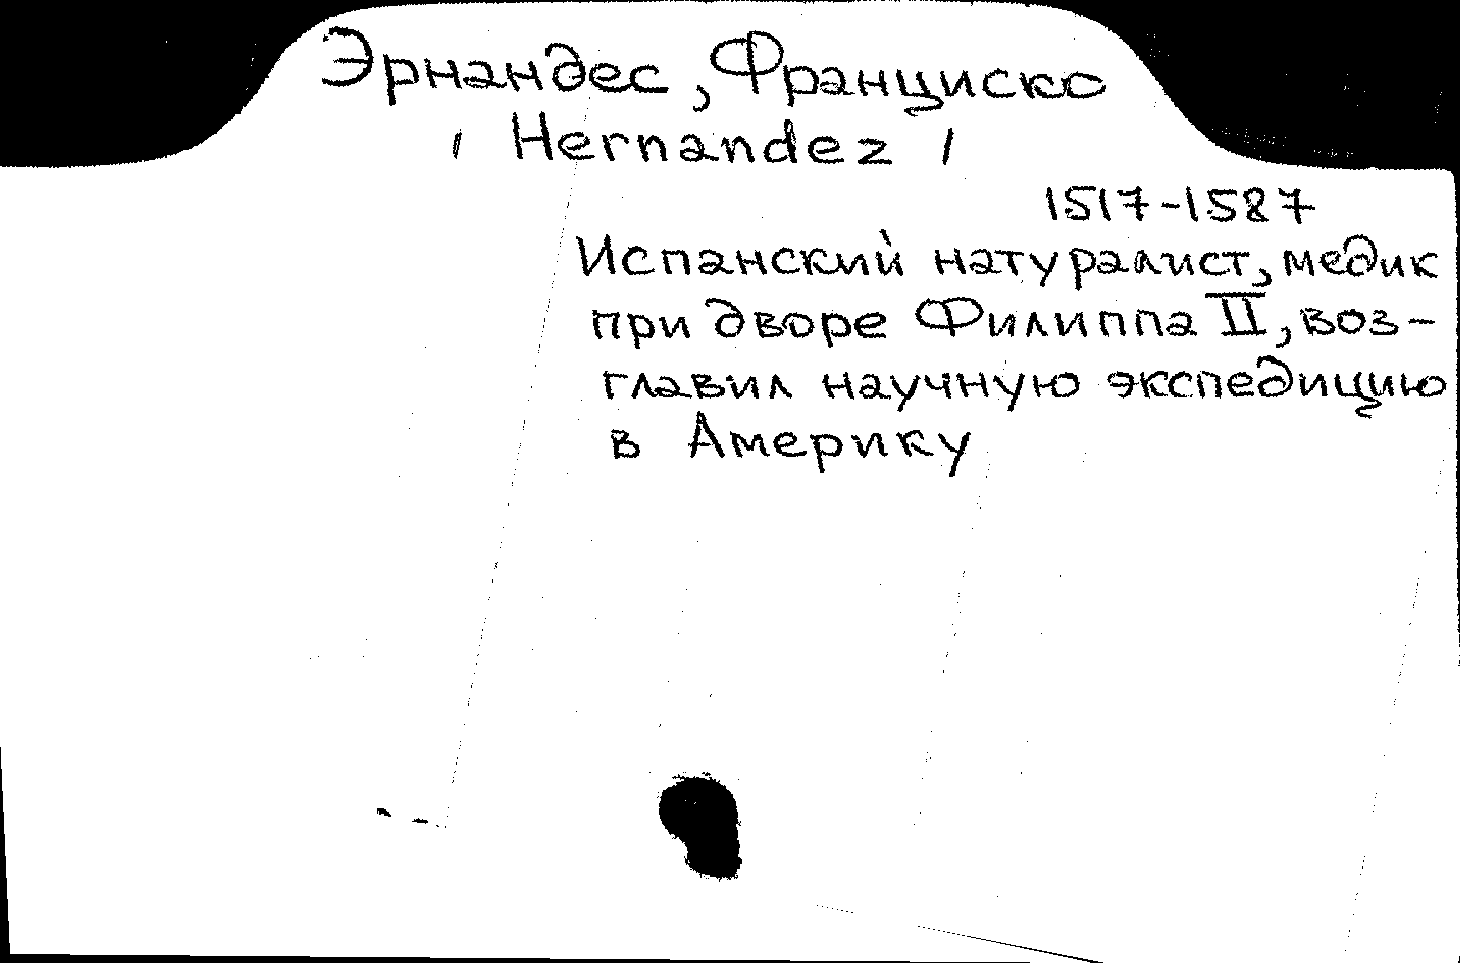 Эрнандес, Франциско
/ Hernandez /
1517-1587
Испанский натуралист, медик
при дворе Филиппа II, воз-
главил научную экспедицию
в Америку